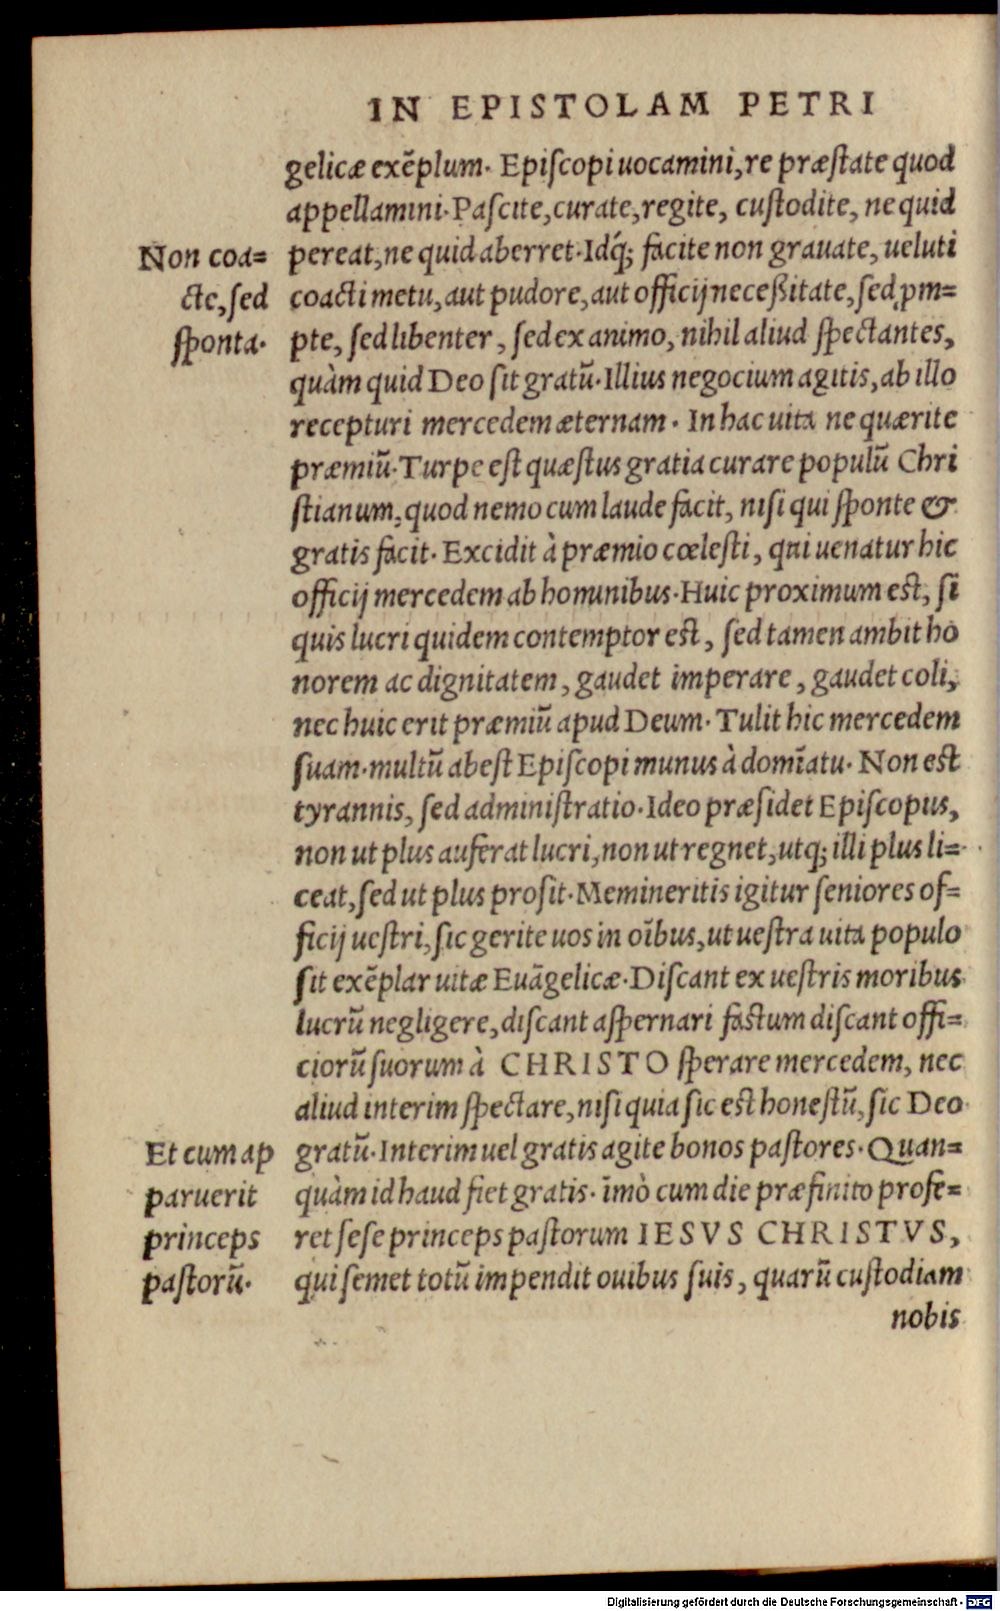 IN EPISTOLAM PETRI
gelicæ exẽplum. Epiſcopi uocamini, re præſtate quod
appellamini. Paſcite, curate, regite, cuſtodite, ne quid
Non coa= pereat, ne quid aberret. Idq́; facite non grauate, ueluti
cte, ſed coacti metu, aut pudore, aut officij neceßitate, ſed ꝓm=
ſponta. pte, ſed libenter, ſed ex animo, nihil aliud ſpectantes,
quàm quid Deo ſit gratũ. Illius negocium agitis, ab illo
recepturi mercedem æternam. In hac uita ne quærite
præmiũ. Turpe eſt quæſtus gratia curare populũ Chri
ſtianum, quod nemo cum laude facit, niſi qui ſponte &
gratis facit. Excidit à præmio cœleſti, qui uenatur hic
officij mercedem ab hominibus. Huic proximum eſt, ſi
quis lucri quidem contemptor eſt, ſed tamen ambit ho
norem ac dignitatem, gaudet imperare, gaudet coli,
nec huic erit præmiũ apud Deum. Tulit hic mercedem
ſuam. multũ abeſt Epiſcopi munus à domĩatu. Non eſt
tyrannis, ſed adminiſtratio. Ideo præſidet Epiſcopus,
non ut plus auferat lucri, non ut regnet, utq; illi plus li=
ceat, ſed ut plus proſit. Memineritis igitur ſeniores of=
ficij ueſtri, ſic gerite uos in oĩbus, ut ueſtra uita populo
ſit exẽplar uitæ Euãgelicæ. Diſcant ex ueſtris moribus
lucrũ negligere, diſcant aſpernari faſtum diſcant offi=
ciorũ ſuorum à CHRISTO ſperare mercedem, nec
aliud interim ſpectare, niſi quia ſic eſt honeſtũ, ſic Deo
Et cum ap gratũ. Interim uel gratis agite bonos paſtores. Quan=
paruerit quàm id haud fiet gratis. ĩmò cum die præfinito profe=
princeps ret ſeſe princeps paſtorum IESVS CHRISTVS,
paſtorũ. qui ſemet totũ impendit ouibus ſuis, quarũ cuſtodiam
nobis
Digitalisierung gefördert durch die Deutsche Forschungsgemeinschaft - DFG